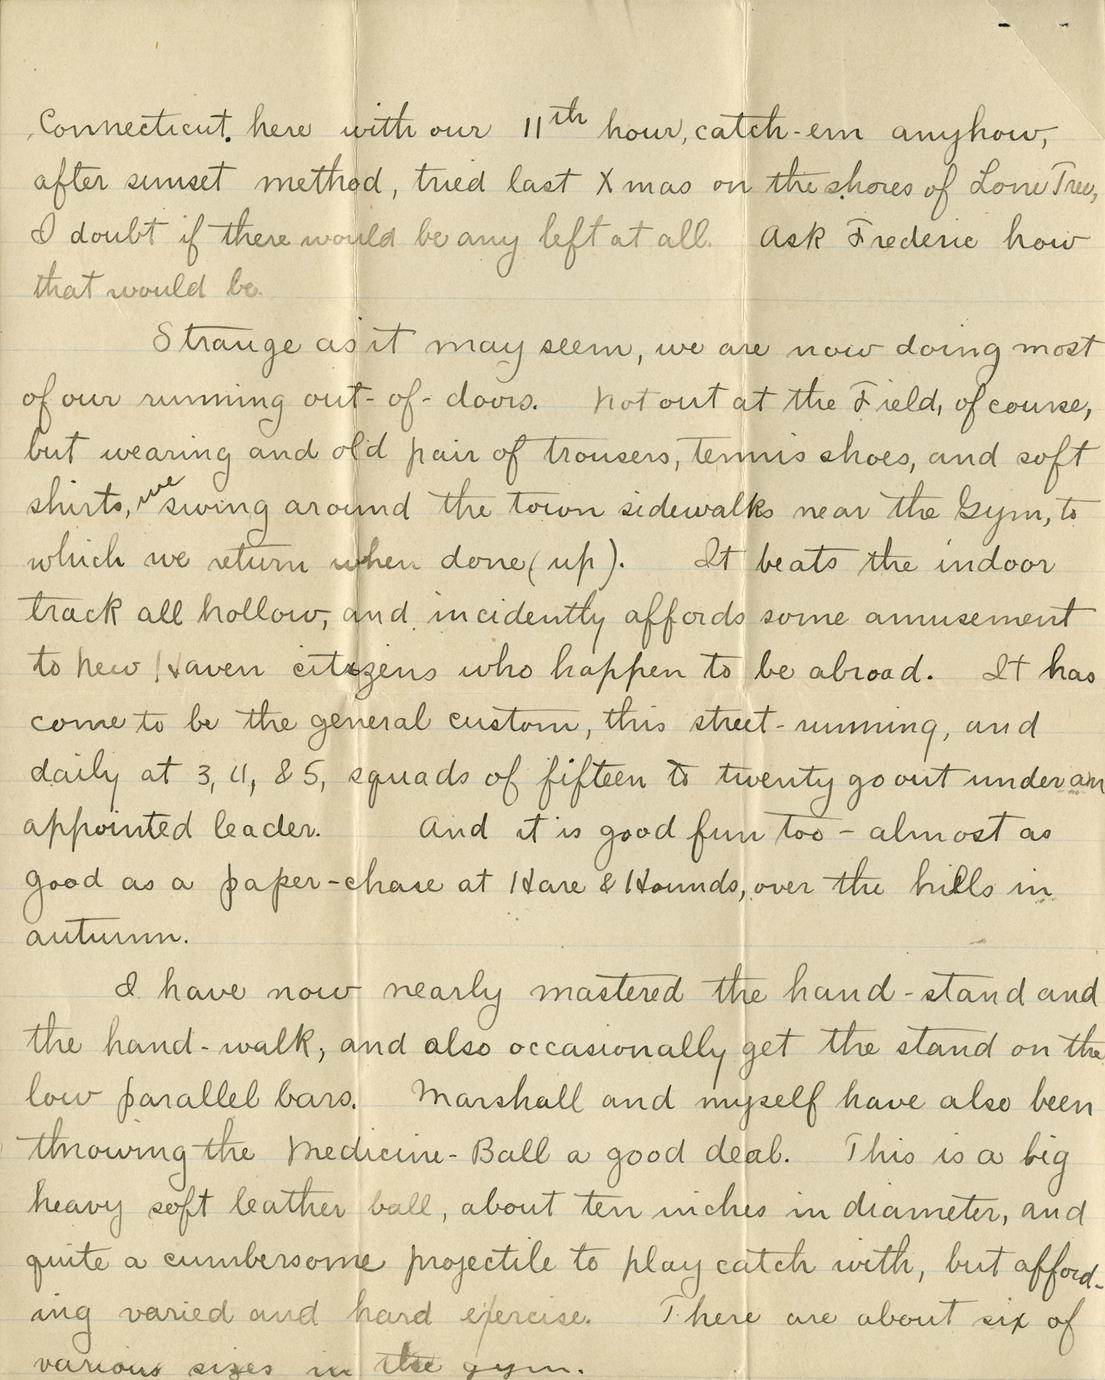 Connecticut. here with our 11th hour, catch-em anyhow,
after sunset method, tried last Xmas on the shores of Lone Tree,
I doubt if there would be any left at all. Ask Frederic how
that would be.
Strange as it may seem, we are now doing most
of our running out-of-doors. Not out at the Field, of course,
but wearing and old pair of trousers, tennis shoes, and soft
shirts, we swing around the town sidewalks near the Gym, to
which we return when done (up). It beats the indoor
track all hollow, and incidently affords some amusement
to New Haven citizens who happen to be abroad. It has
come to be the general custom, this street-running, and
daily at 3, 4, & 5, squads of fifteen to twenty go out under an
appointed leader. And it is good fun too - almost as
good as a paper-chase at Hare & Hounds, over the hills in
autumn.
I have now nearly mastered the hand-stand and
the hand-walk, and also occasionally get the stand on the
low parallel bars. Marshall and myself have also been
throwing the Medicine-Ball a good deal. This is a big
heavy soft leather ball, about ten inches in diameter, and
quite a cumbersome projectile to play catch with, but afford-
ing varied and hard exercise. There are about six of
various sizes in the gym.